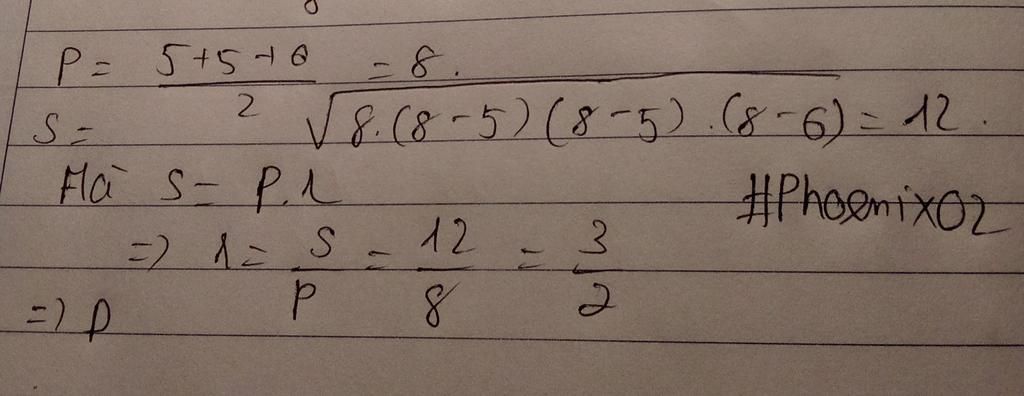 P = \frac{5+5+6}{2} = 8.
S = \sqrt{8.(8-5)(8-5).(8-6)} = 12.
Mà S = P.r
#Phoenix02
=> r = \frac{S}{P} = \frac{12}{8} = \frac{3}{2}
=> D